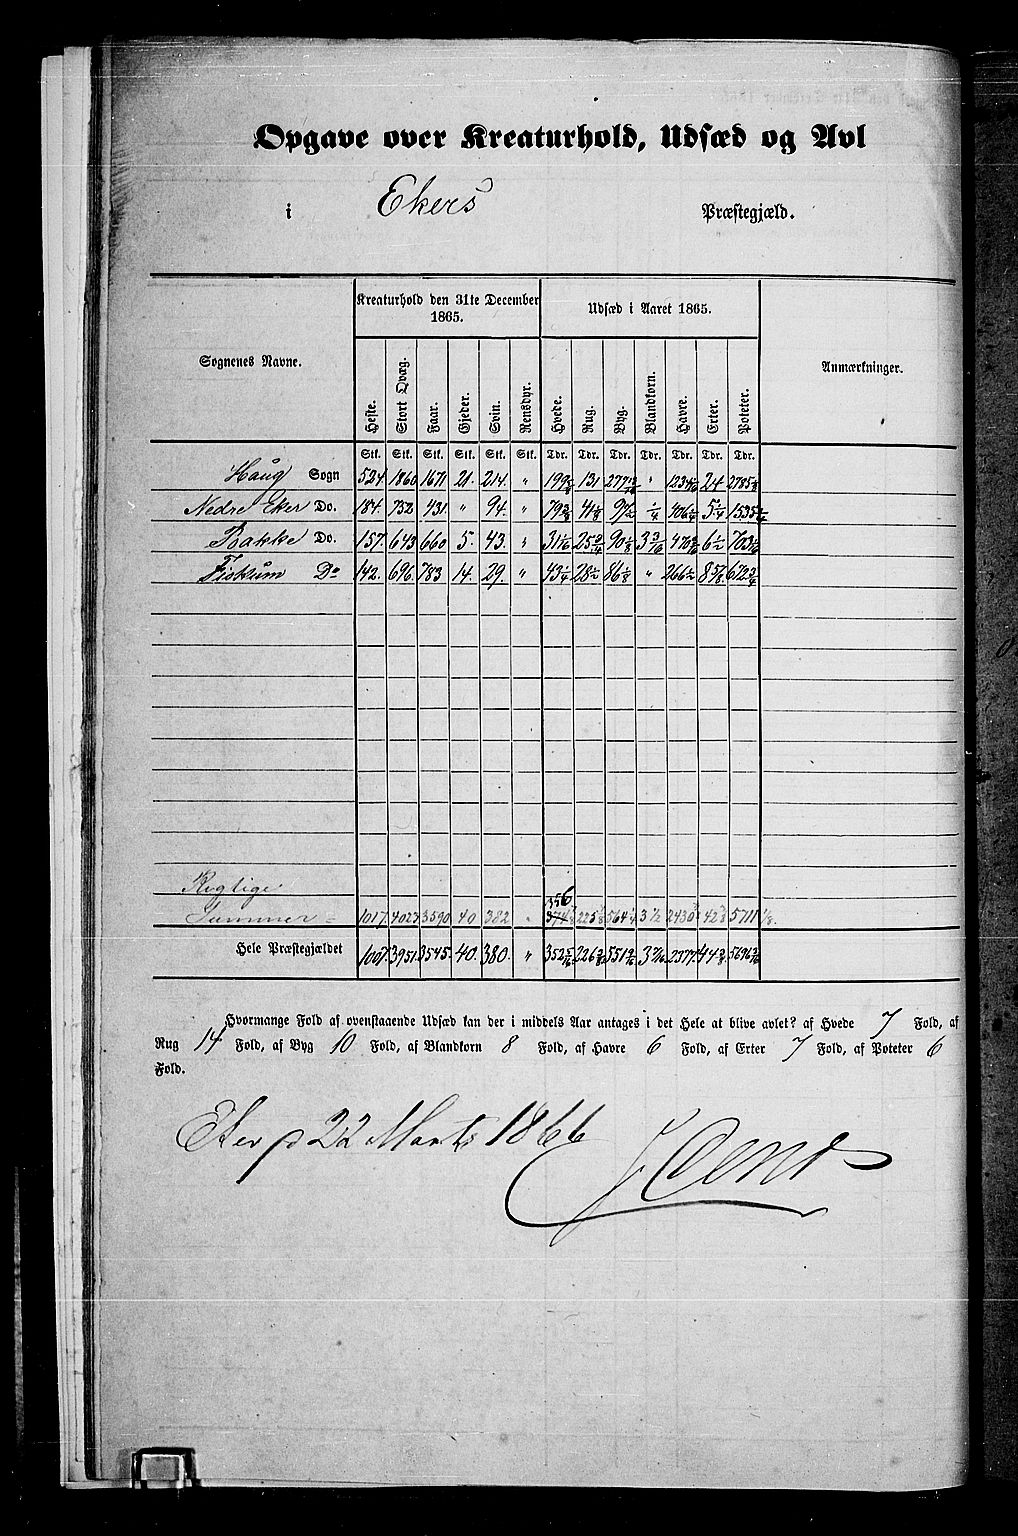 Opgave over Kreaturhold, Udsæd og Avl
i Ekers Præstegjæld.
Sognenes Navne. Kreaturhold den 31te December 1865. Udsæd i Aaret 1865. Anmærkninger.
Heste. Stort Qvæg. Faar. Gjeder. Svin. Rensdyr. Hvede. Rug. Byg. Blandkorn. Havre. Erter. Poteter.
Stk. Stk. Stk. Stk. Stk. Stk. Tdr. Tdr. Tdr. Tdr. Tdr. Tdr. Tdr.
Haug Sogn 524 1860 1671 21. 214. " 131 " 24
Nedre Eker Do. 184. 752 431. " 94. " 97½ ¼ 406¼ 5¼
Bakke Do. 157. 643 660 5. 43. " 31 1/16 25¾ 90⅛ 3 3/16 6½ 703 1/16
Fiskum Do 142. 696. 783 14. 29. " 43¼ 28½ 86⅛ " 266½ 8⅝ 672¾
Rigtige
Summer = 1017. 4027 3590 40 382 " 356 3½ 5711⅛.
Hele Præstegjældet 1007. 3951. 3545. 40. 380. " 3 7/16 2377.
Hvormange Fold af ovenstaaende Udsæd kan der i middels Aar antages i det Hele at blive avlet? af Hvede 7 Fold, af
Rug 14 Fold, af Byg 10 Fold, af Blandkorn 8 Fold, af Havre 6 Fold, af Erter 7 Fold, af Poteter 6
Fold.
Eker p 22 Marts 1866